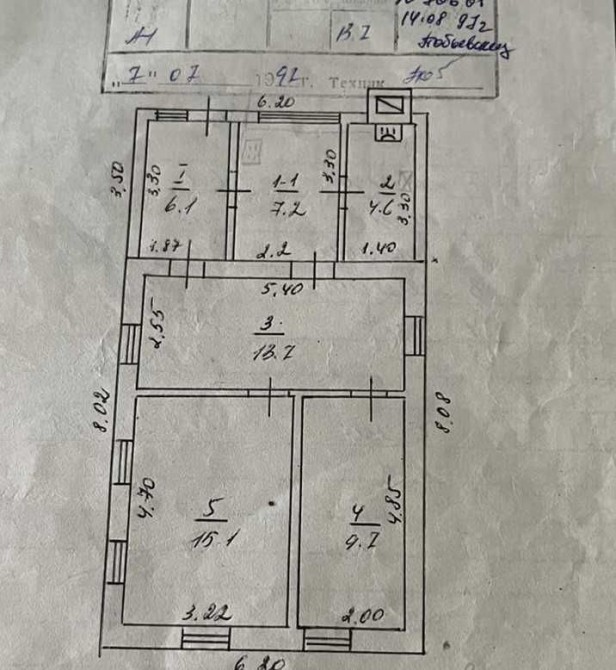 14.08 97г
А-1
В 7
"7" 07 1992 г. Техник
6.20
3,50
3,30
I
6.1
1-1
7.2
3,30
2
4.6
3,30
1.87
2.2
1.40
5.40
2,55
3.
13.7
8.02
8.08
4.70
5
15.1
4
9.7
4.85
3.22
2.00
6.20